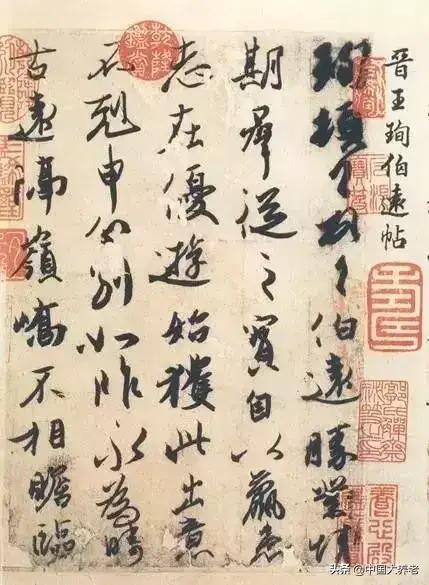 晋王珣伯遠帖
珣頓首頓首伯遠勝業情
期群從之寳自以羸患
志在優遊始獲此出意
不剋申分別如昨永為疇
古遠隔嶺嶠不相瞻臨
头条@中国大养老